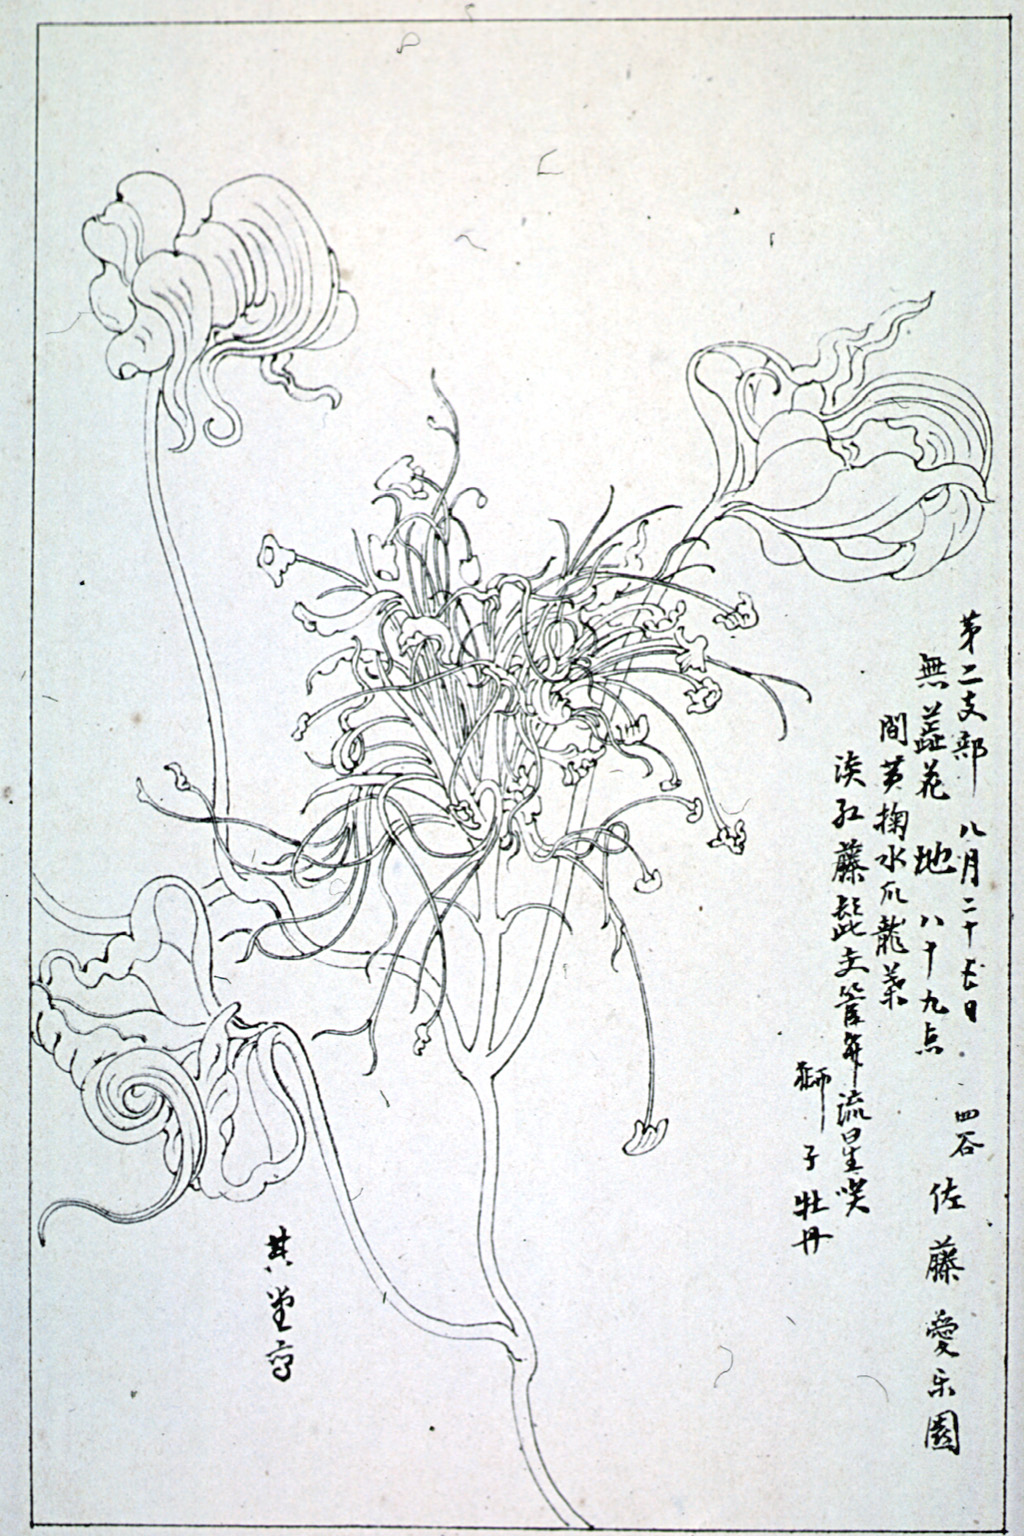 第二支部 八月二十七日 四谷 佐藤愛乐園
無蕋花 地 八十九点
間黄掬水爪龍葉
淡紅藤髭交管弁流星咲
獅子牡丹
其堂写